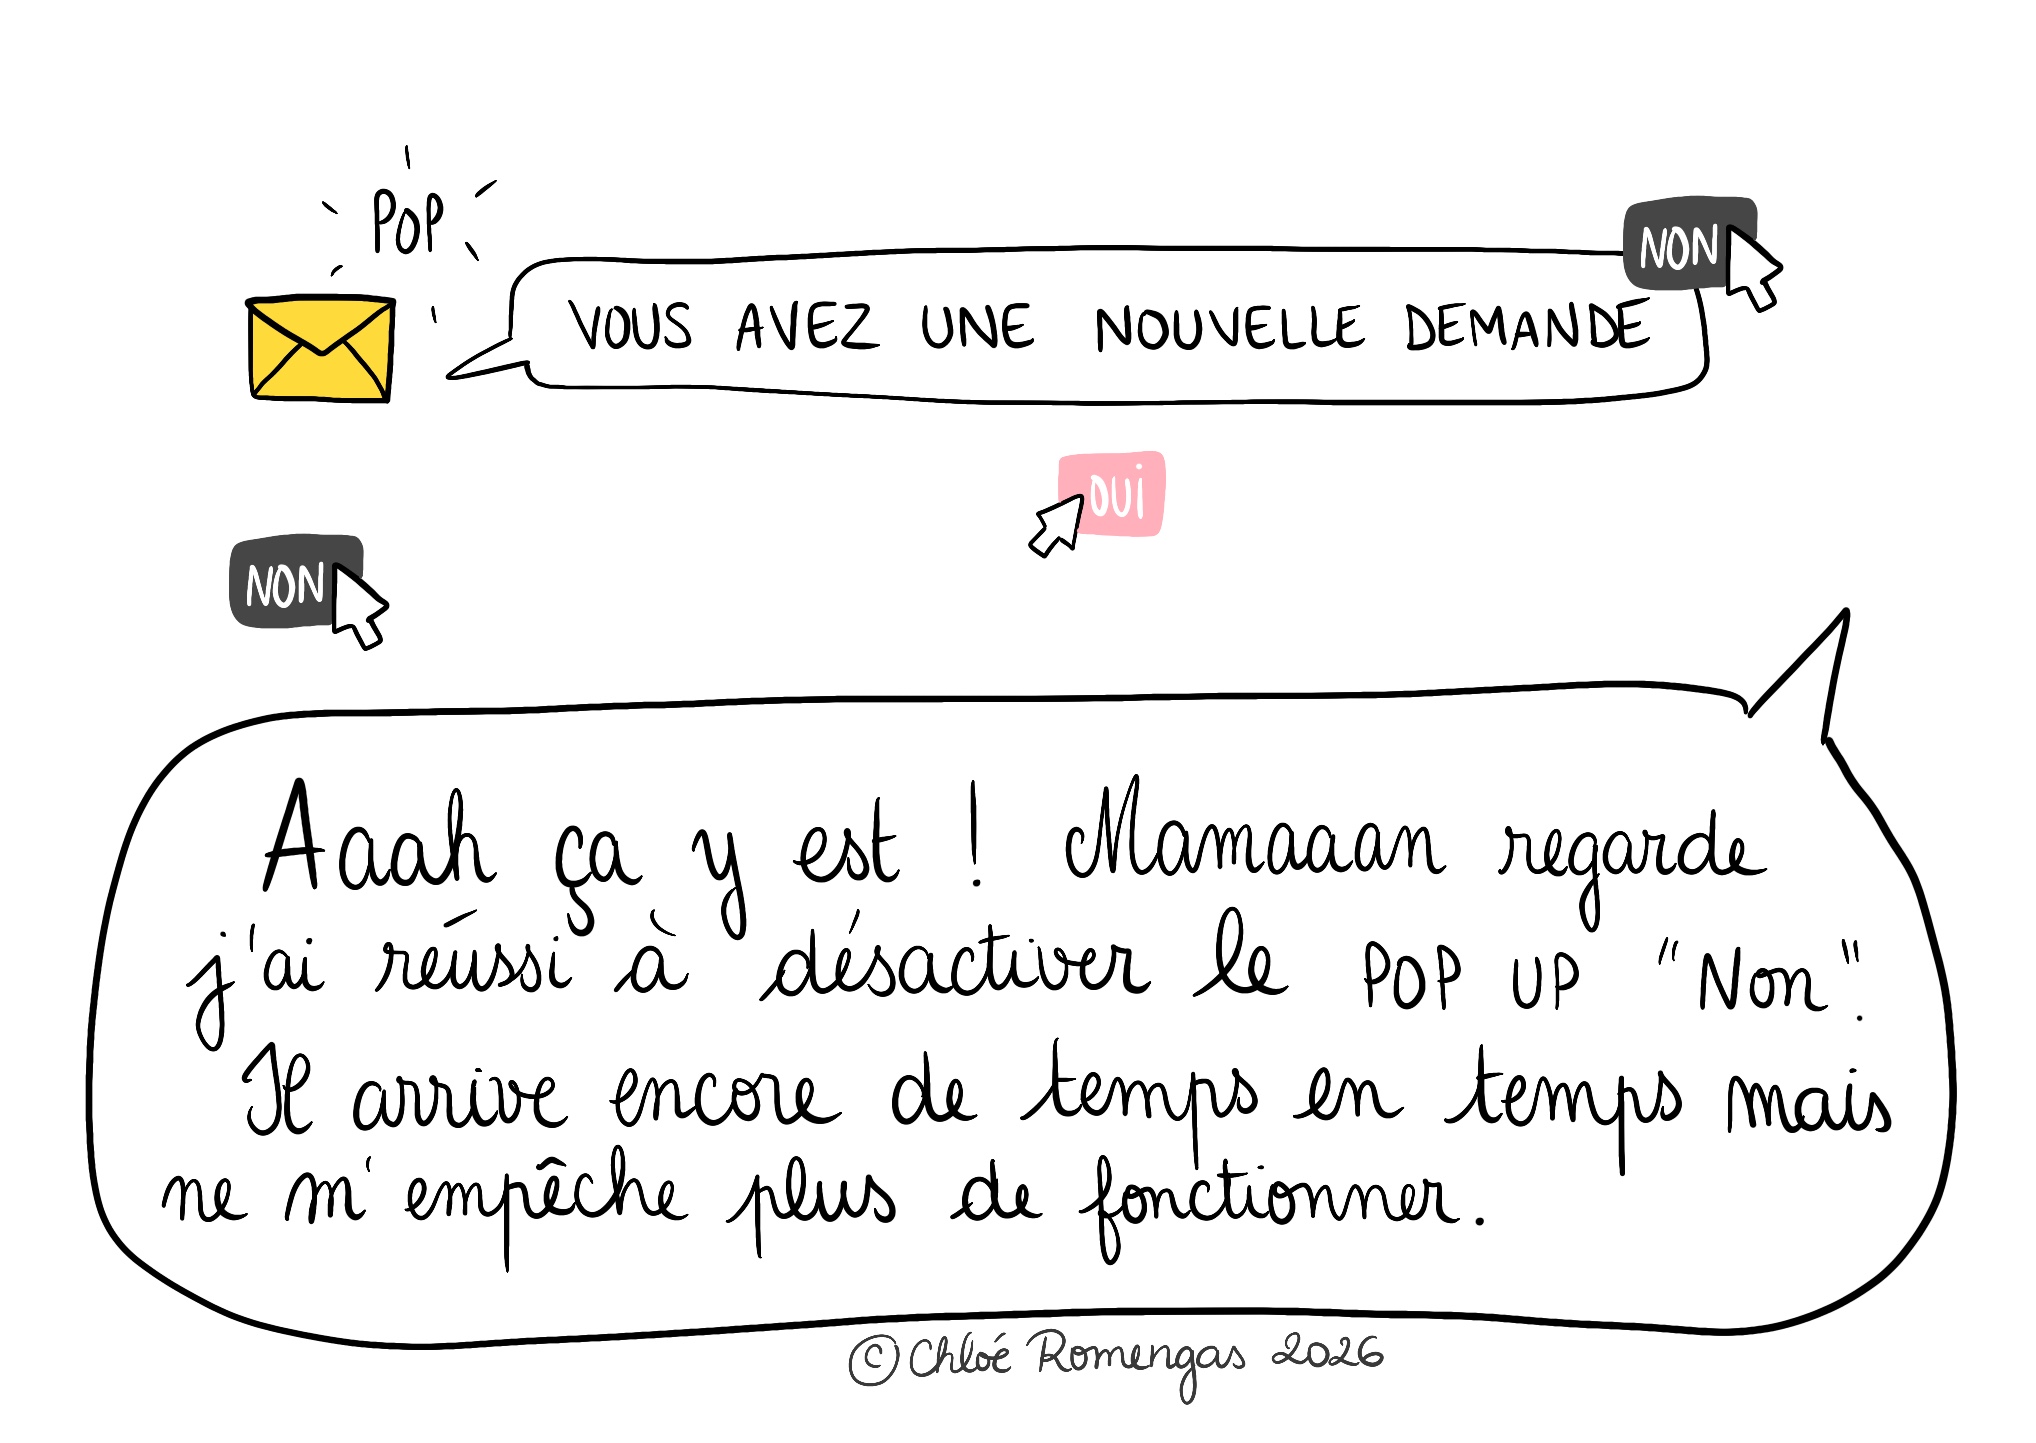 POP
NON
VOUS AVEZ UNE NOUVELLE DEMANDE
OUI
NON
Aaah ça y est ! Mamaaan regarde
j'ai réussi à désactiver le POP UP "Non".
Il arrive encore de temps en temps mais
ne m'empêche plus de fonctionner.
© Chloé Romengas 2026